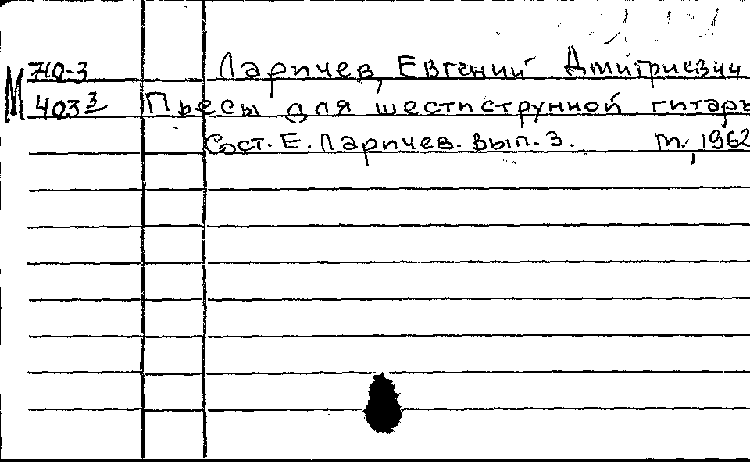 М 710-3 Ларичев, Евгений Дмитриевич
403 3 Пьесы для шестиструнной гитары
Сост. Е. Ларичев. Вып. 3. М., 1962